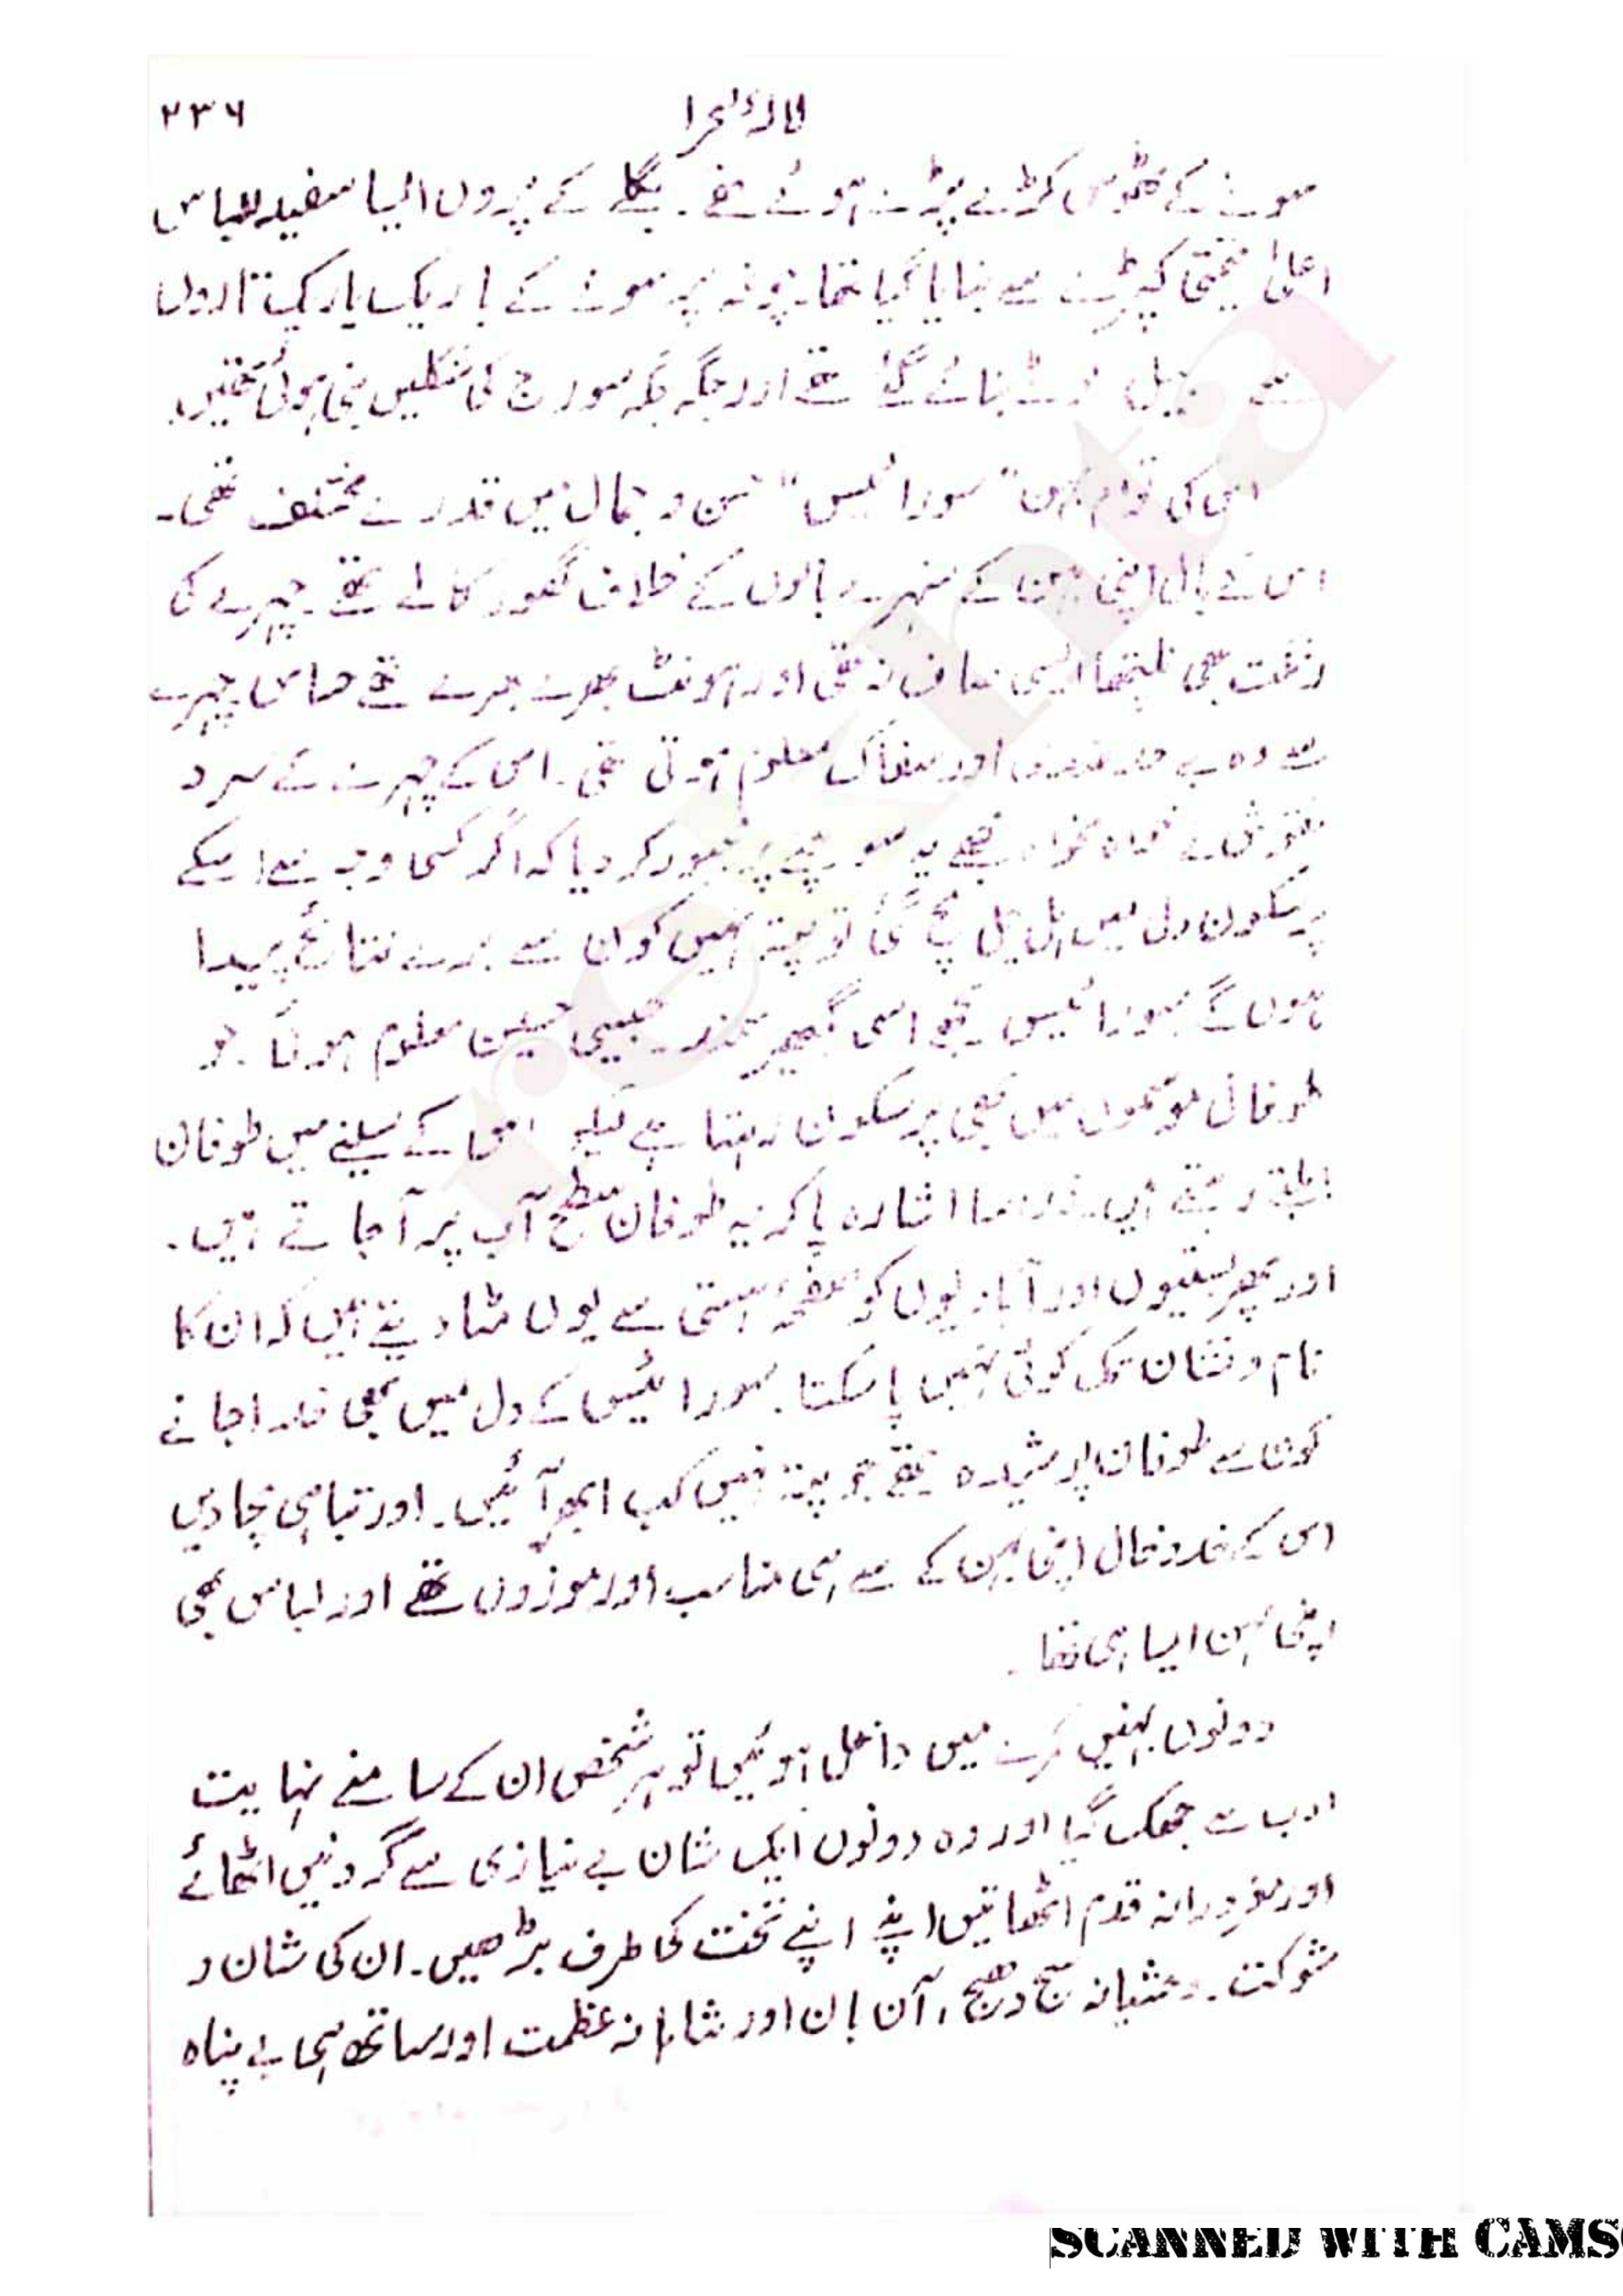 ۲۳۶
سونے کے ٹھوس کڑے پڑے ہوئے تھے۔ بگلے کے پروں ایسا سفید لباس
اعلیٰ قیمتی کپڑے سے بنایا گیا تھا۔ چوغہ پر سونے کے باریک باریک تاروں
سے بیل بنائے گئے تھے اور جگہ جگہ سورج کی شکلیں بنی ہوئی تھیں۔
اس کی توام بہن "سورائیس" حسن و جمال میں قدرے مختلف تھی۔
اس کے بال اپنی بہن کے سنہرے بالوں کے خلاف گھور کالے تھے۔ چہرے کی
رنگت بھی نلیتھا ایسی صاف نہ تھی اور ہونٹ بھرے بھرے تھے حساس چہرے
سے وہ بے حد اور سفاک معلوم ہوتی تھی۔ اس کے چہرے کے سرد
نقوش نے خواہ مخواہ مجھے یہ سوچنے پر مجبور کر دیا کہ اگر کسی وجہ سے اسکے
پرسکون دل میں ہل چل مچ گئی تو پتہ نہیں کون سے برے نتائج پیدا
ہوں گے سورائیس مجھے اسی گمبھیر سمندر جیسی حسین معلوم ہوئی۔ جو
طوفانی موسموں میں بھی پرسکون رہتا ہے لیکن اس کے سینے میں طوفان
ابلتے رہتے ہیں۔ ذرا سا اشارہ پا کر یہ طوفان سطح آب پر آ جاتے ہیں۔
اور پھر بستیوں اور آبادیوں کو صفحۂ ہستی سے یوں مٹا دیتے ہیں کہ ان کا
نام و نشان تک کوئی نہیں پا سکتا۔ سورائیس کے دل میں بھی خدا جانے
کون سے طوفان پوشیدہ تھے جو پتہ نہیں کب ابھر آئیں۔ اور تباہی مچا دیں
اس کے خدوخال اپنی بہن کے سے ہی متناسب اور موزوں تھے اور لباس بھی
اپنی بہن ایسا ہی تھا۔
دونوں بہنیں کمرے میں داخل ہوئیں تو ہر شخص ان کے سامنے نہایت
ادب سے جھک گیا اور وہ دونوں ایک شان بے نیازی سے گردنیں اٹھائے
اور مغرورانہ قدم اٹھاتیں اپنے اپنے تخت کی طرف بڑھیں۔ ان کی شان و
شوکت۔ وحشیانہ سج دھج، آن بان اور شاہانہ عظمت اور ساتھ ہی بے پناہ
rekhta
SCANNED WITH CAMS